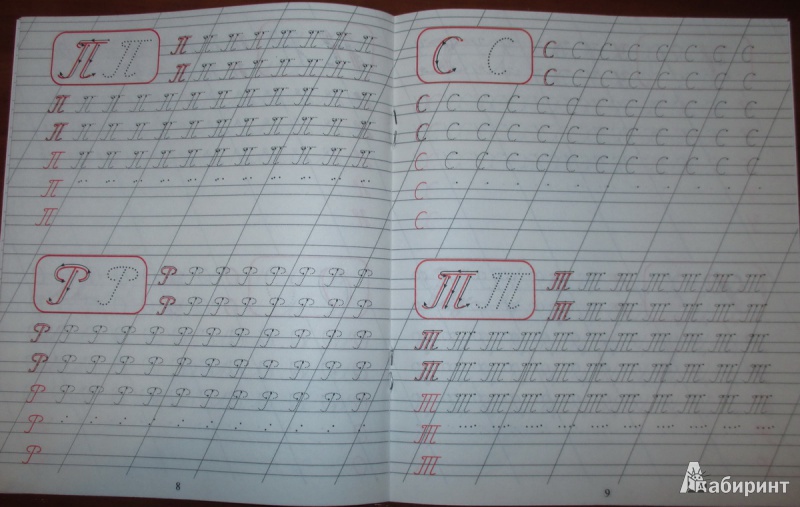 П П
П П П П П П П П
П П П П П П П П
П П П П П П П П П П П П
П П П П П П П П П П П П
П П П П П П П П П П П П
П
П
Р Р
Р Р Р Р Р Р Р Р
Р Р Р Р Р Р Р Р
Р Р Р Р Р Р Р Р Р Р Р Р
Р Р Р Р Р Р Р Р Р Р Р Р
Р Р Р Р Р Р Р Р Р Р Р Р
Р
Р
8
С С
С С С С С С С С
С С С С С С С С
С С С С С С С С С С С С
С С С С С С С С С С С С
С С С С С С С С С С С С
С
С
Т Т
Т Т Т Т Т Т Т
Т Т Т Т Т Т Т
Т Т Т Т Т Т Т Т Т Т Т
Т Т Т Т Т Т Т Т Т Т Т
Т Т Т Т Т Т Т Т Т Т Т
Т
Т
9
Лабиринт